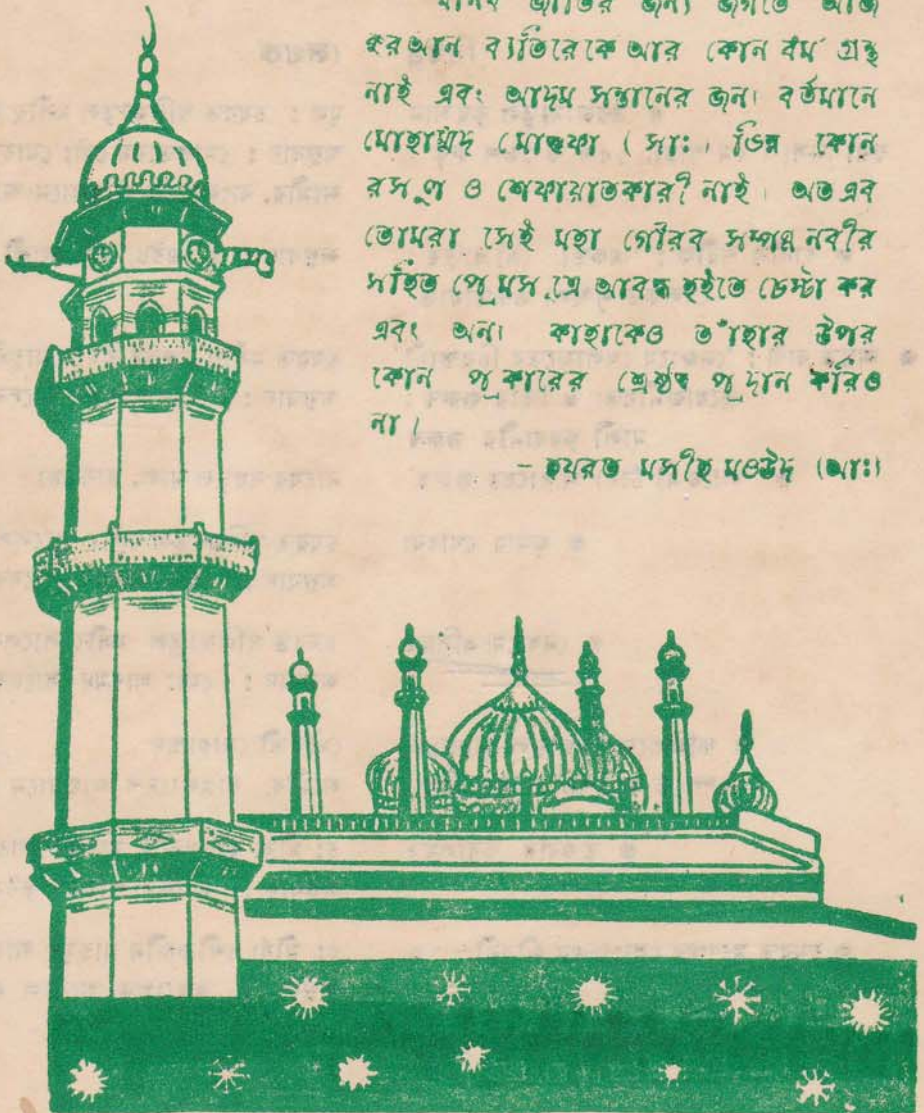 মানব জাতির জন্য জগতে আজ
কুরআন ব্যতিরেকে আর কোন ধর্ম গ্রন্থ
নাই এবং আদম সন্তানের জন্য বর্তমানে
মোহাম্মদ মোস্তফা (সাঃ) ভিন্ন কোন
রসূল ও শেফায়াতকারী নাই। অতএব
তোমরা সেই মহা গৌরব সম্পন্ন নবীর
সহিত প্রেমসূত্রে আবদ্ধ হইতে চেষ্টা কর
এবং অন্য কাহাকেও তাঁহার উপর
কোন প্রকারের শ্রেষ্ঠত্ব প্রদান করিও
না।
- হযরত মসীহ মওউদ (আঃ)